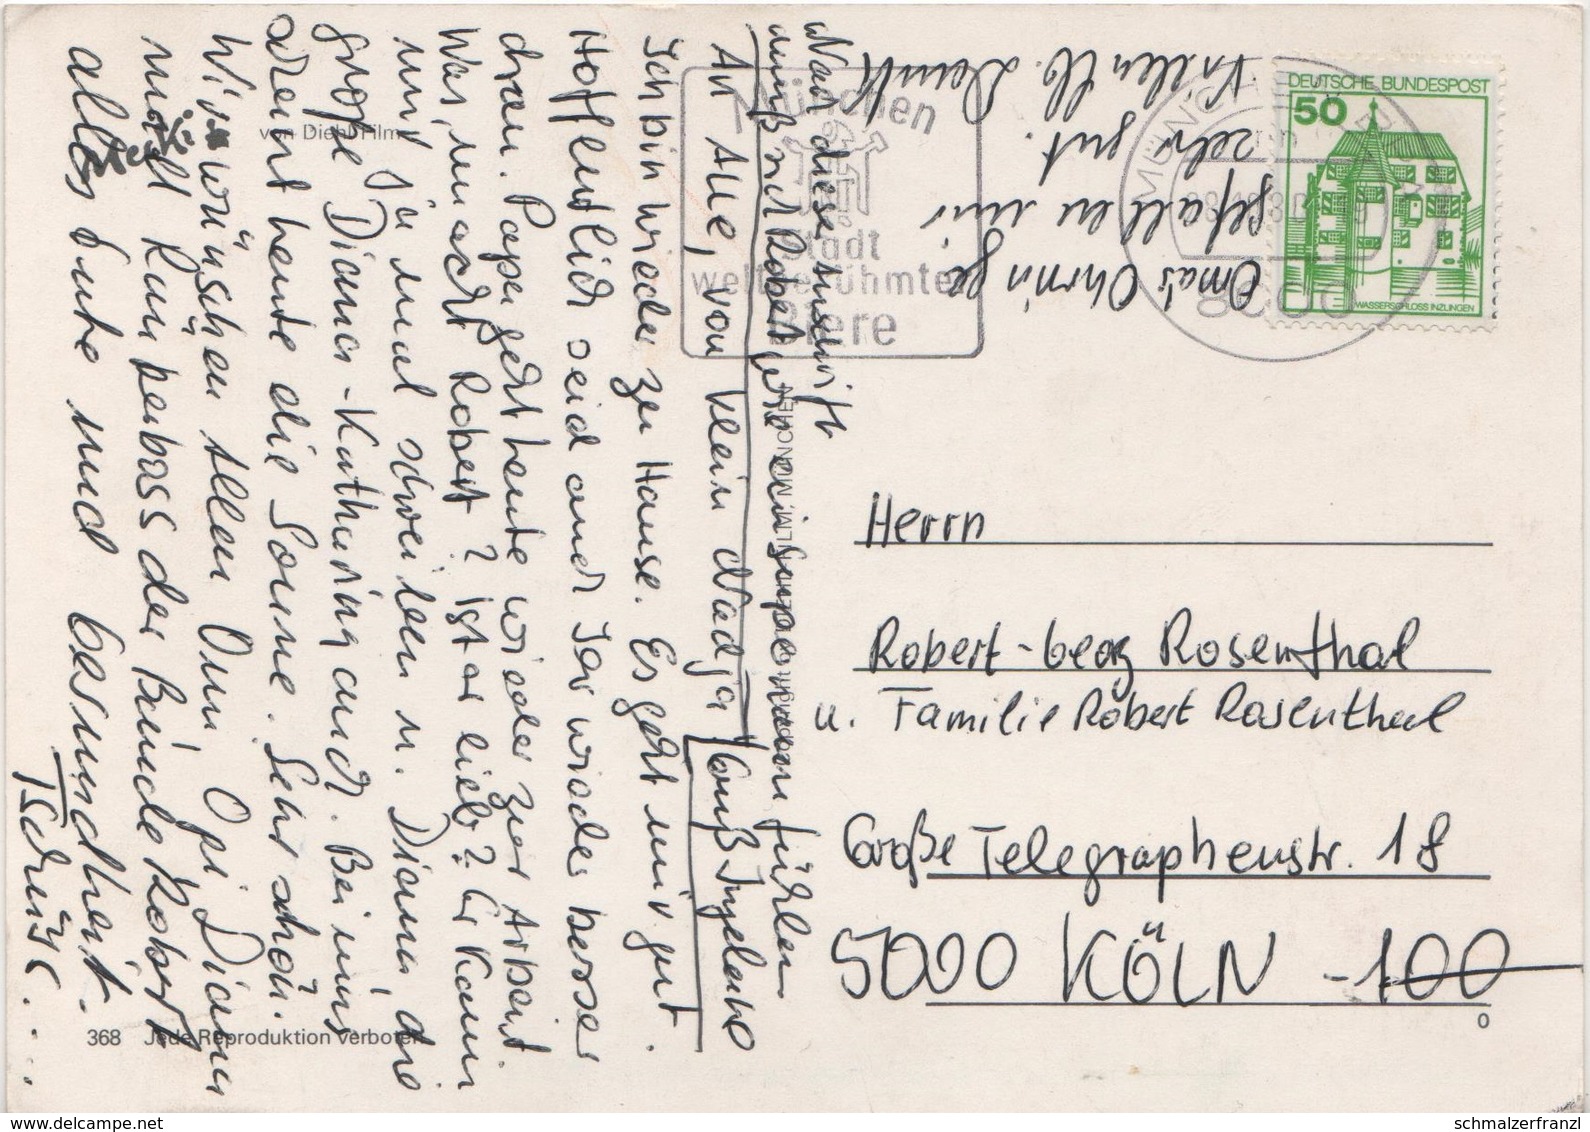 An Alle, von klein Nadja
Ich bin wieder zu Hause. Es geht mir gut.
Hoffentlich seid auch Ihr wieder besser
dran. Papa geht heute wieder zur Arbeit.
Was macht Robert? Ist er lieb? Er kann
mir ja mal schreiben u. Diana, die
große Diana-Katharina auch. Bei uns
scheint heute die Sonne. Sehr schön.
Wir wünschen Allen Omi, Opi Diana
Robert
alles Gute und Gesundheit.
Tschüsc...
Nach dieser
muß sich Robert wie ein Super kaan fühlen
Gruß Ingeborg
Oma's Ohrringe
gefallen mir
sehr gut.
Vielen lb. Dank
von Diehl Film
368 Jede Reproduktion verboten
München
Stadt
weltberühmter
Biere
DEUTSCHE BUNDESPOST
50
WASSERSCHLOSS INZLINGEN
MÜNCHEN
8000
Herrn
Robert-Georg Rosenthal
u. Familie Robert Rosenthal
Große Telegraphenstr. 18
5000 KÖLN -100
0
www.schmalzerfranzl.delcampe.net
schmalzerfranzl